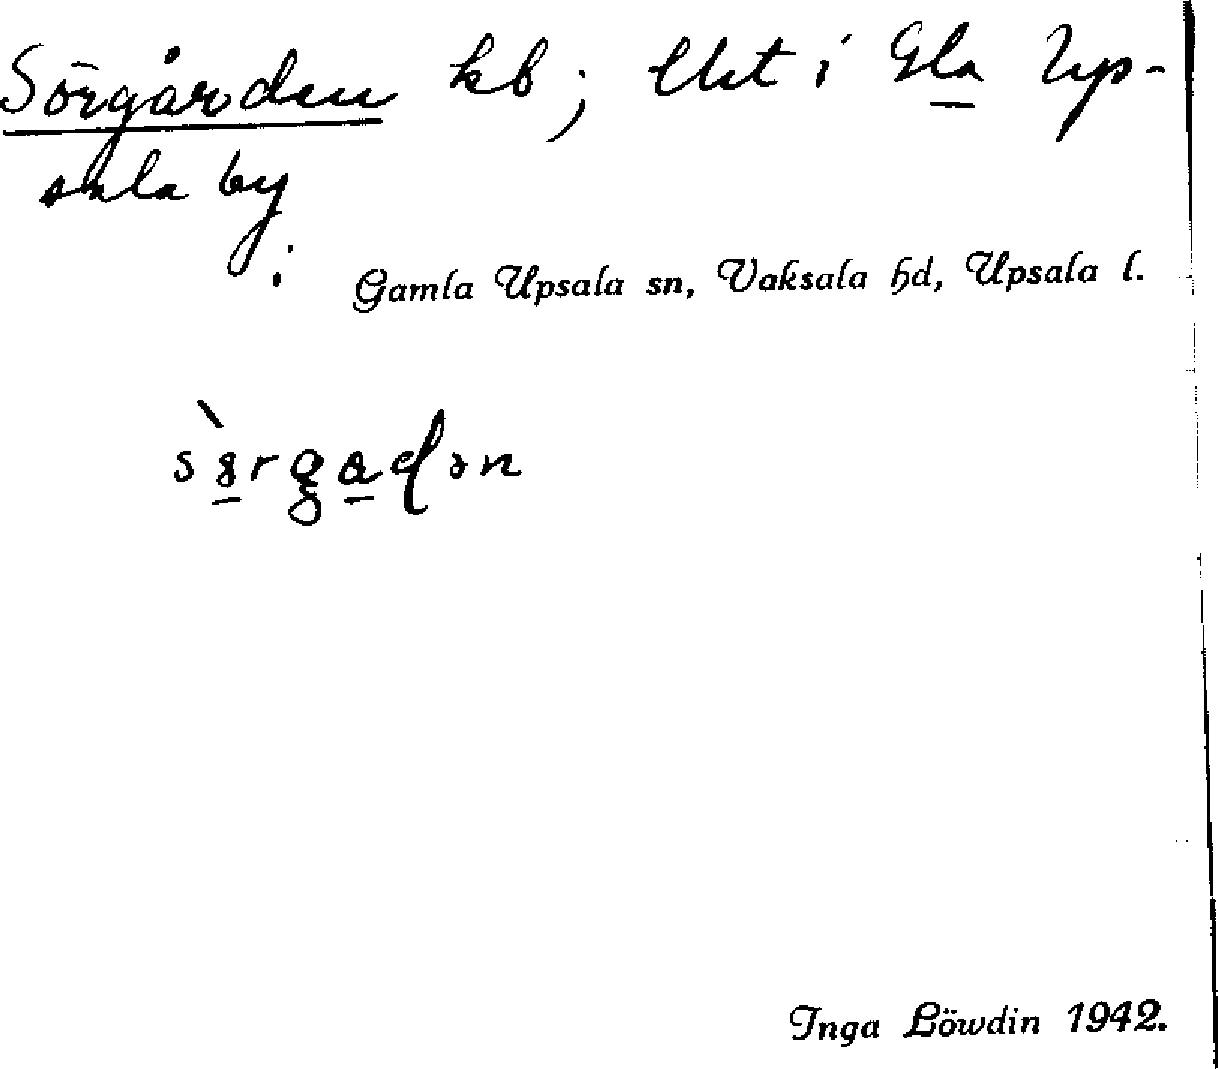 Sörgården kb; ett i Gla Up-
sala by
:
Gamla Upsala sn, Vaksala hd, Upsala l.
Inga Löwdin 1942.